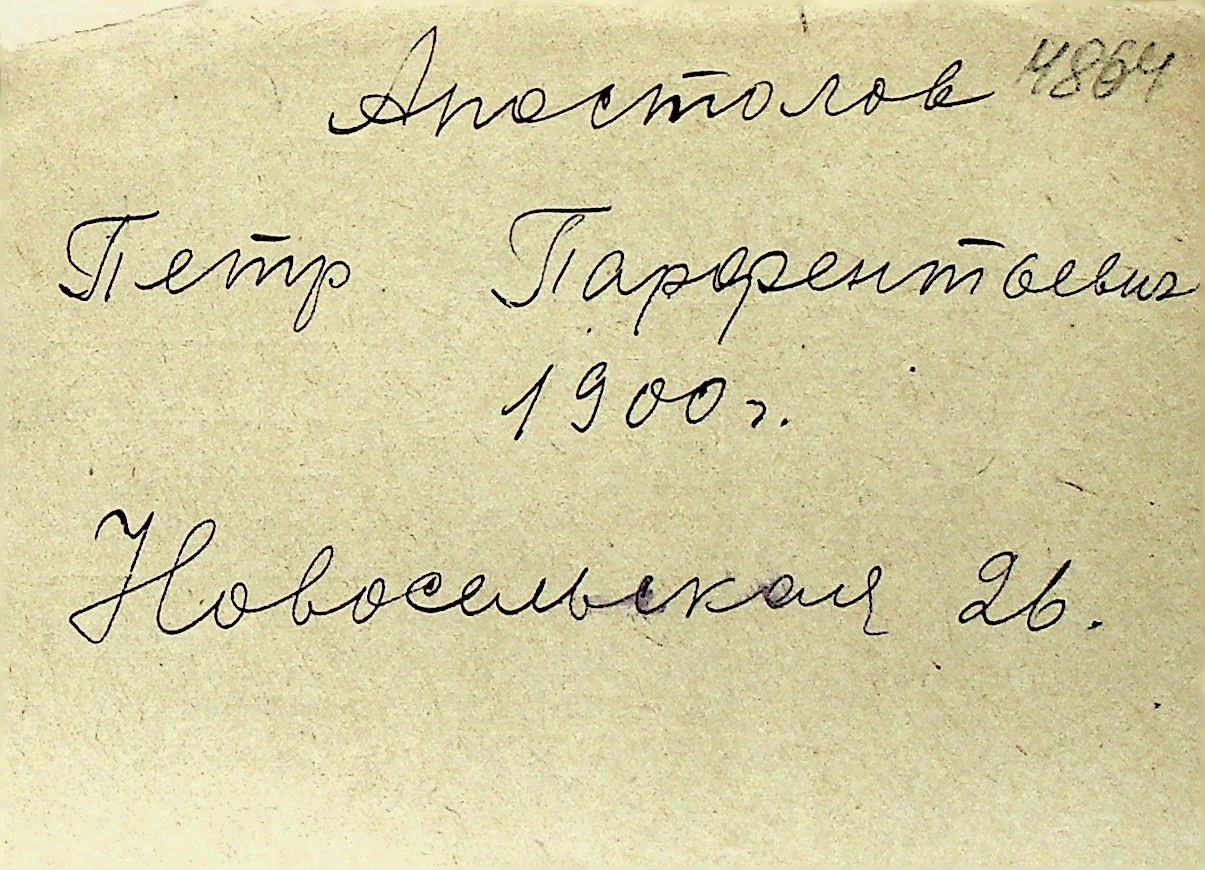 Апостолов 4864
Петр Парфентьевич
1900 г.
Новосельская 26.